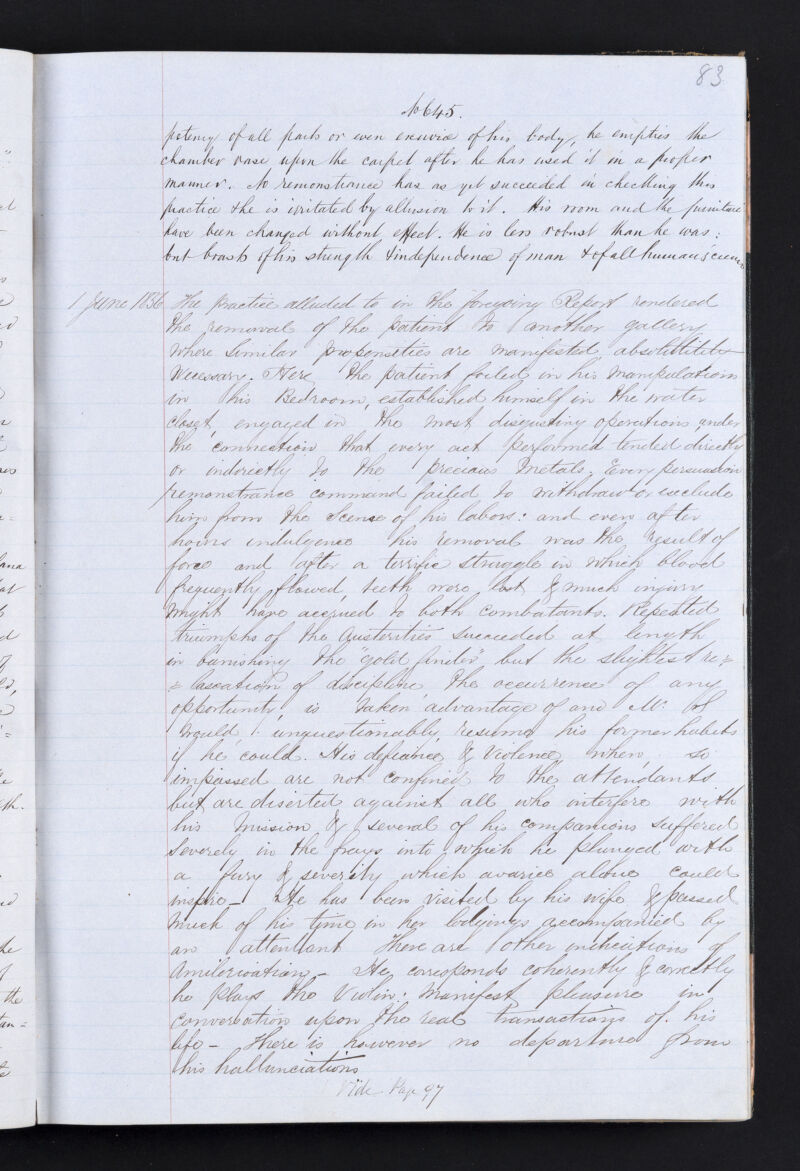 83
No 645.
potency of all parts or even exuviæ of his body, he empties the
chamber vase upon the carpet after he has used it in a proper
manner. No remonstrance has as yet succeeded in checking this
practice & he is irritated by allusion to it. His room and the furniture
have been changed without effect. He is less robust than he was:
but boasts of his strength & independence of man & of all human science
1 June 1856 The practice alluded to in the foregoing Report rendered
the removal of the patient to another gallery
where similar propensities are manifested absolutely
necessary. Here the patient foiled in his manipulations
in his Bedroom, established himself in the water
closet, engaged in the most disgusting operations, under
the connection that every act performed tended directly
or indirectly to the precious metals. Every persuasion
remonstrance command failed to withdraw or seclude
him from the Scene of his labors: and even after
hours indulgence his removal was the result of
force and after a terrific struggle in which blood
frequently flowed, teeth were lost & much injury
might have accrued to both combatants. Repeated
triumphs of the Austerities succeeded at length
in banishing the "gold finder" but the slightest re=
=laxation of discipline the occurrence of any
opportunity is taken advantage of and Mr.
would unquestionably resume his former habits
if he could. His defiance & Violence, when so
impassed are not confined to the attendants
but are diserted against all who interfere with
his Mission & several of his companions suffered
severely in the frays into which he plunged with
a fury & severity which avarice alone could
inspire_ He has been visited by his wife & passed
much of his time in her lodgings accompanied by
an attendant There are other indications of
Amilerioation_ He corresponds coherently & correctly
he plays the Violin: Manifest pleasure in
conversation upon the real transactions of his
life_ There is however no departure from
his hallunciations
Vide Page 97